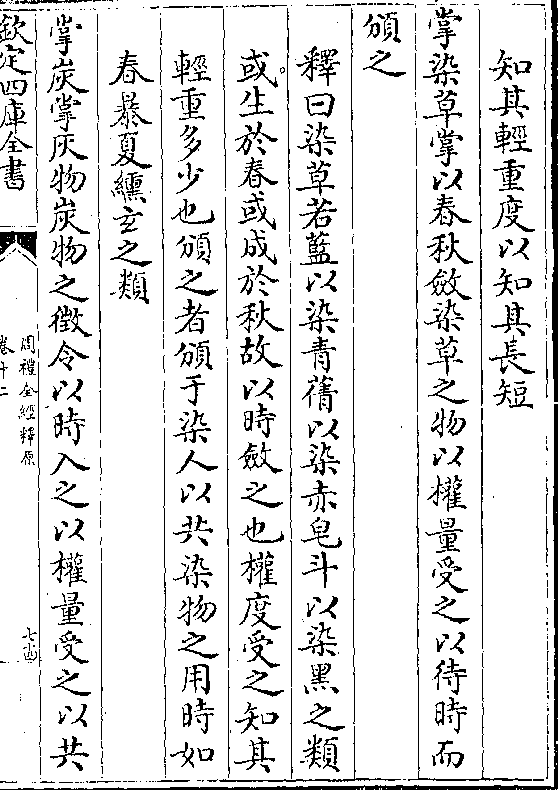 知其輕重度以知其長短
掌染草掌以春秋斂染草之物以權量受之以待時而
頒之
釋曰染草若藍以染青蒨以染赤皂斗以染黑之類
或生於春或成於秋故以時斂之也權度受之知其
輕重多少也頒之者頒于染人以共染物之用時如
春暴夏纁玄之類
掌炭掌灰物炭物之徵令以時入之以權量受之以共
欽定四庫全書
周禮全經釋原
卷十二